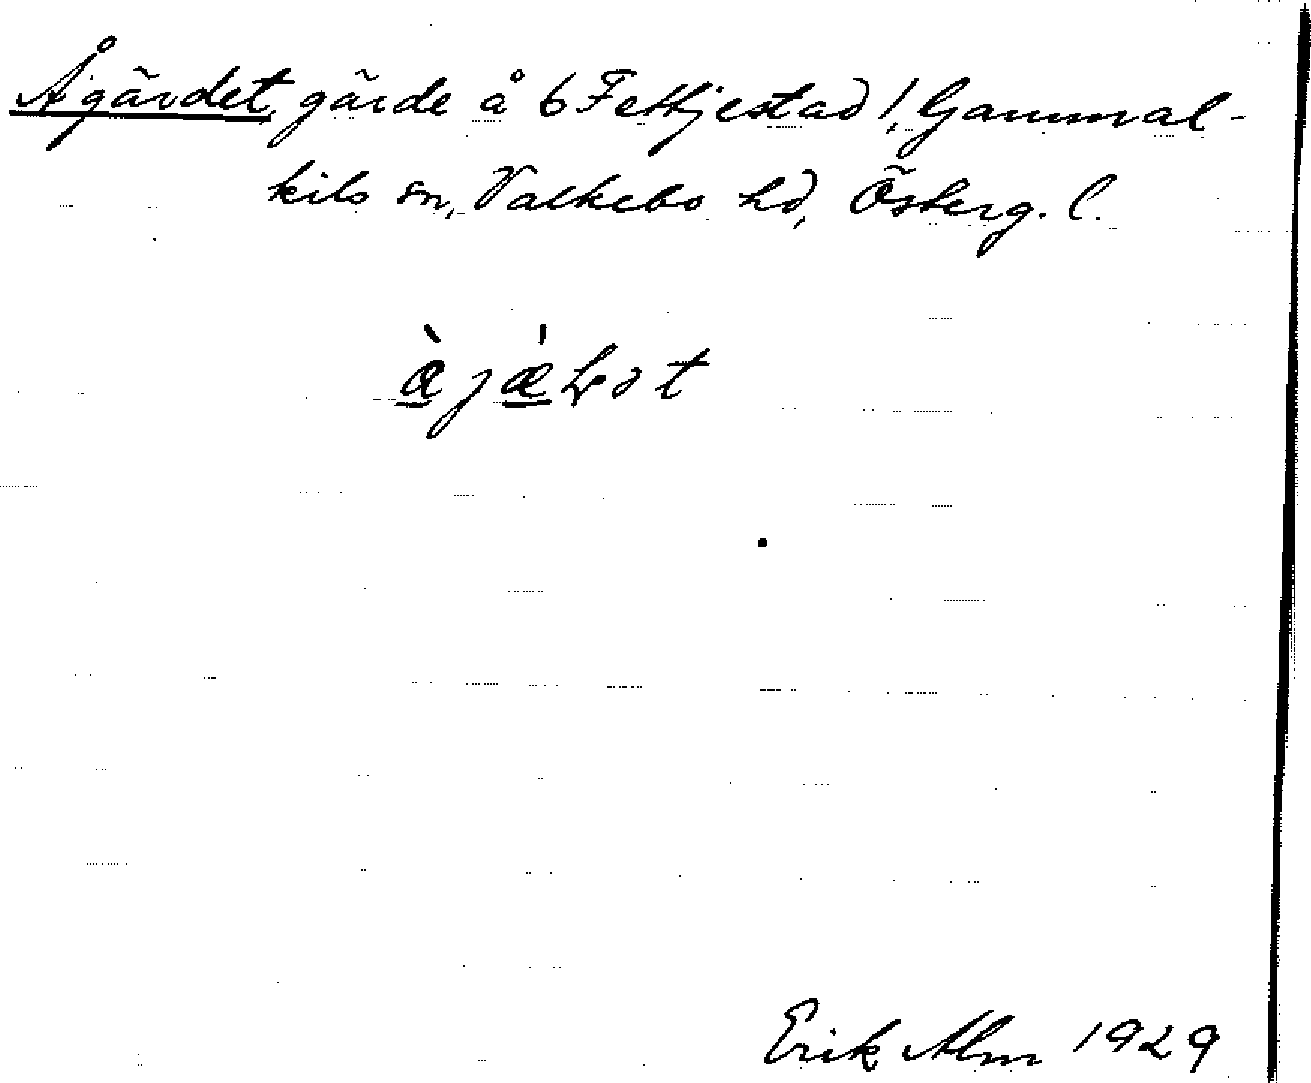 Ågärdet, gärde å 6 Fettjestad!, Gammal-
kils sn, Valkebo hd, Österg. l.
Erik Alm 1929